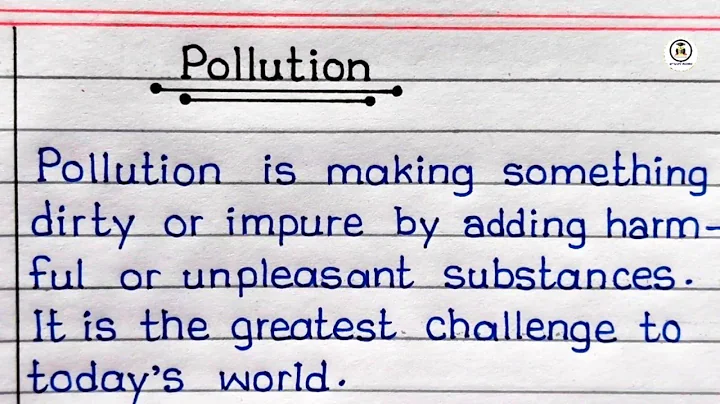 Pollution
Pollution is making something
dirty or impure by adding harm-
ful or unpleasant substances.
It is the greatest challenge to
today's world.